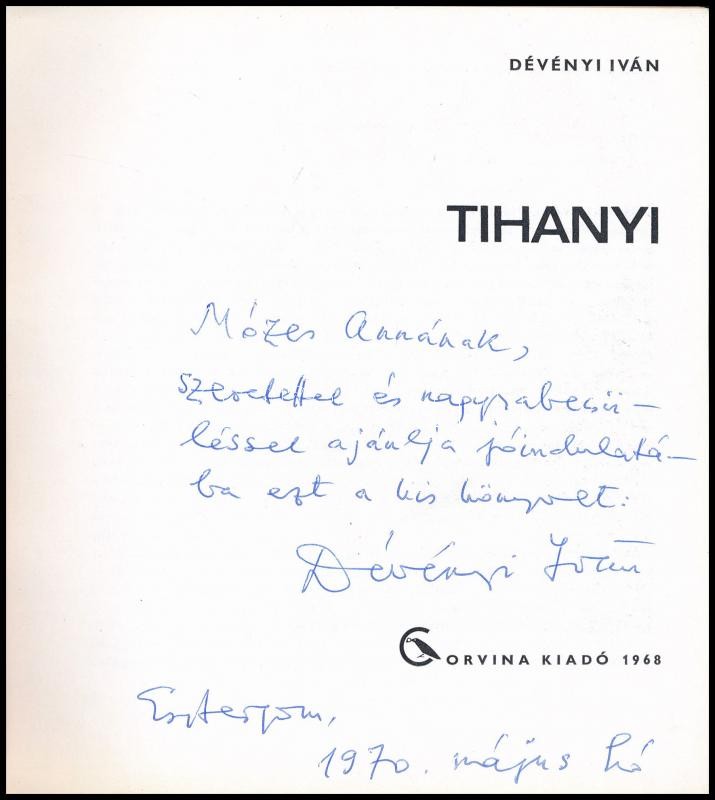 DÉVÉNYI IVÁN
TIHANYI
Mózes Annának,
szeretettel és nagyrabecsü–
léssel ajánlja jóindulatá–
ba ezt a kis könyvet:
Dévényi Iván
CORVINA KIADÓ 1968
Esztergom,
1970. május hó